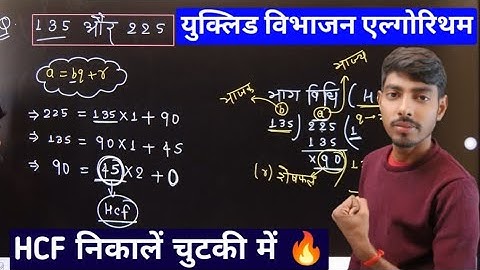 Q. 135 और 225
युक्लिड विभाजन एल्गोरिथम
a = bq + r
⇒ 225 = 135 × 1 + 90
⇒ 135 = 90 × 1 + 45
⇒ 90 = 45 × 2 + 0
Hcf
भाज्य
भाजक
भाग विधि
(b)
(a)
135) 225 (1
135
× 90
(r) शेषफल
HCF निकालें चुटकी में 🔥